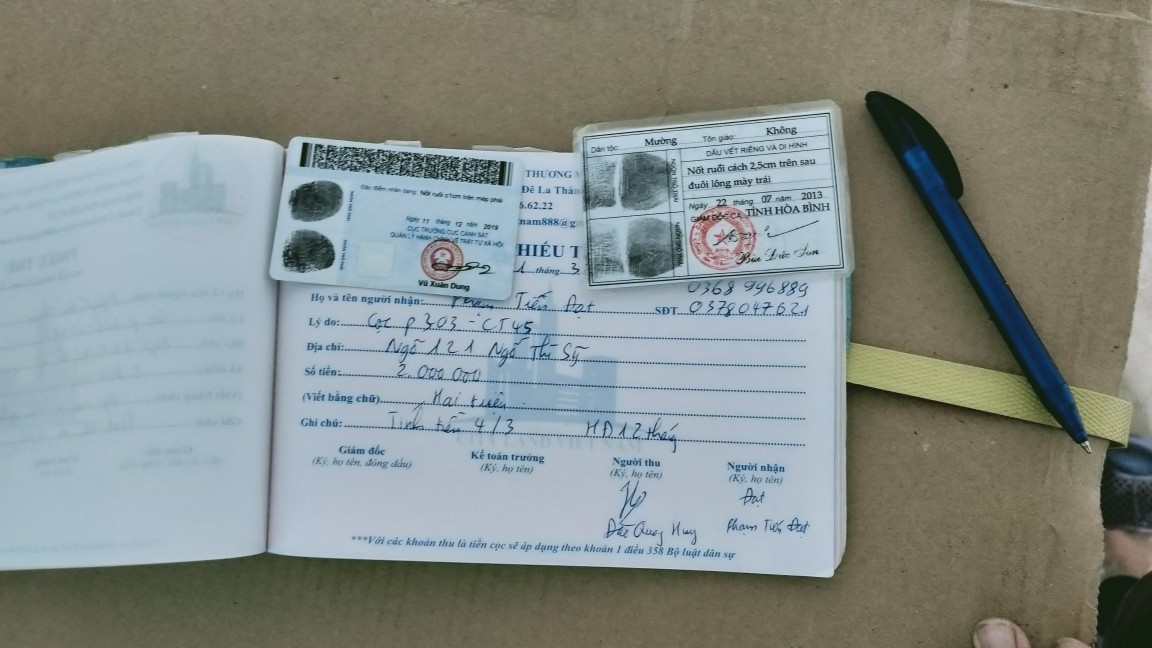 Đặc điểm nhận dạng: Nốt ruồi c1cm trên mép phải
Ngày 11 tháng 12 năm 2019
CỤC TRƯỞNG CỤC CẢNH SÁT
QUẢN LÝ HÀNH CHÍNH VỀ TRẬT TỰ XÃ HỘI
Vũ Xuân Dung
Dân tộc: Mường Tôn giáo: Không
DẤU VẾT RIÊNG VÀ DỊ HÌNH
Nốt ruồi cách 2,5cm trên sau
đuôi lông mày trái
Ngày 22 tháng 07 năm 2013
GIÁM ĐỐC CA TỈNH HÒA BÌNH
Bùi Đức Sơn
THƯƠNG
Đê La Thàn
6.62.22
nam888@g
HIẾU T
1 tháng 3
0368 996889
Họ và tên người nhận: Phạm Tiến Đạt SĐT 0378047621
Lý do: Cọc p 303 - CT45
Địa chỉ: Ngõ 121 Ngô Thì Sỹ
Số tiền: 2.000.000
(Viết bằng chữ) Hai triệu
Ghi chú: Tính tiền 4/3 HĐ 12 tháng
Giám đốc Kế toán trưởng Người thu Người nhận
(Ký, họ tên, đóng dấu) (Ký, họ tên) (Ký, họ tên) (Ký, họ tên)
Đạt
Quang Huy Phạm Tiến Đạt
***Với các khoản thu là tiền cọc sẽ áp dụng theo khoản 1 điều 358 Bộ luật dân sự